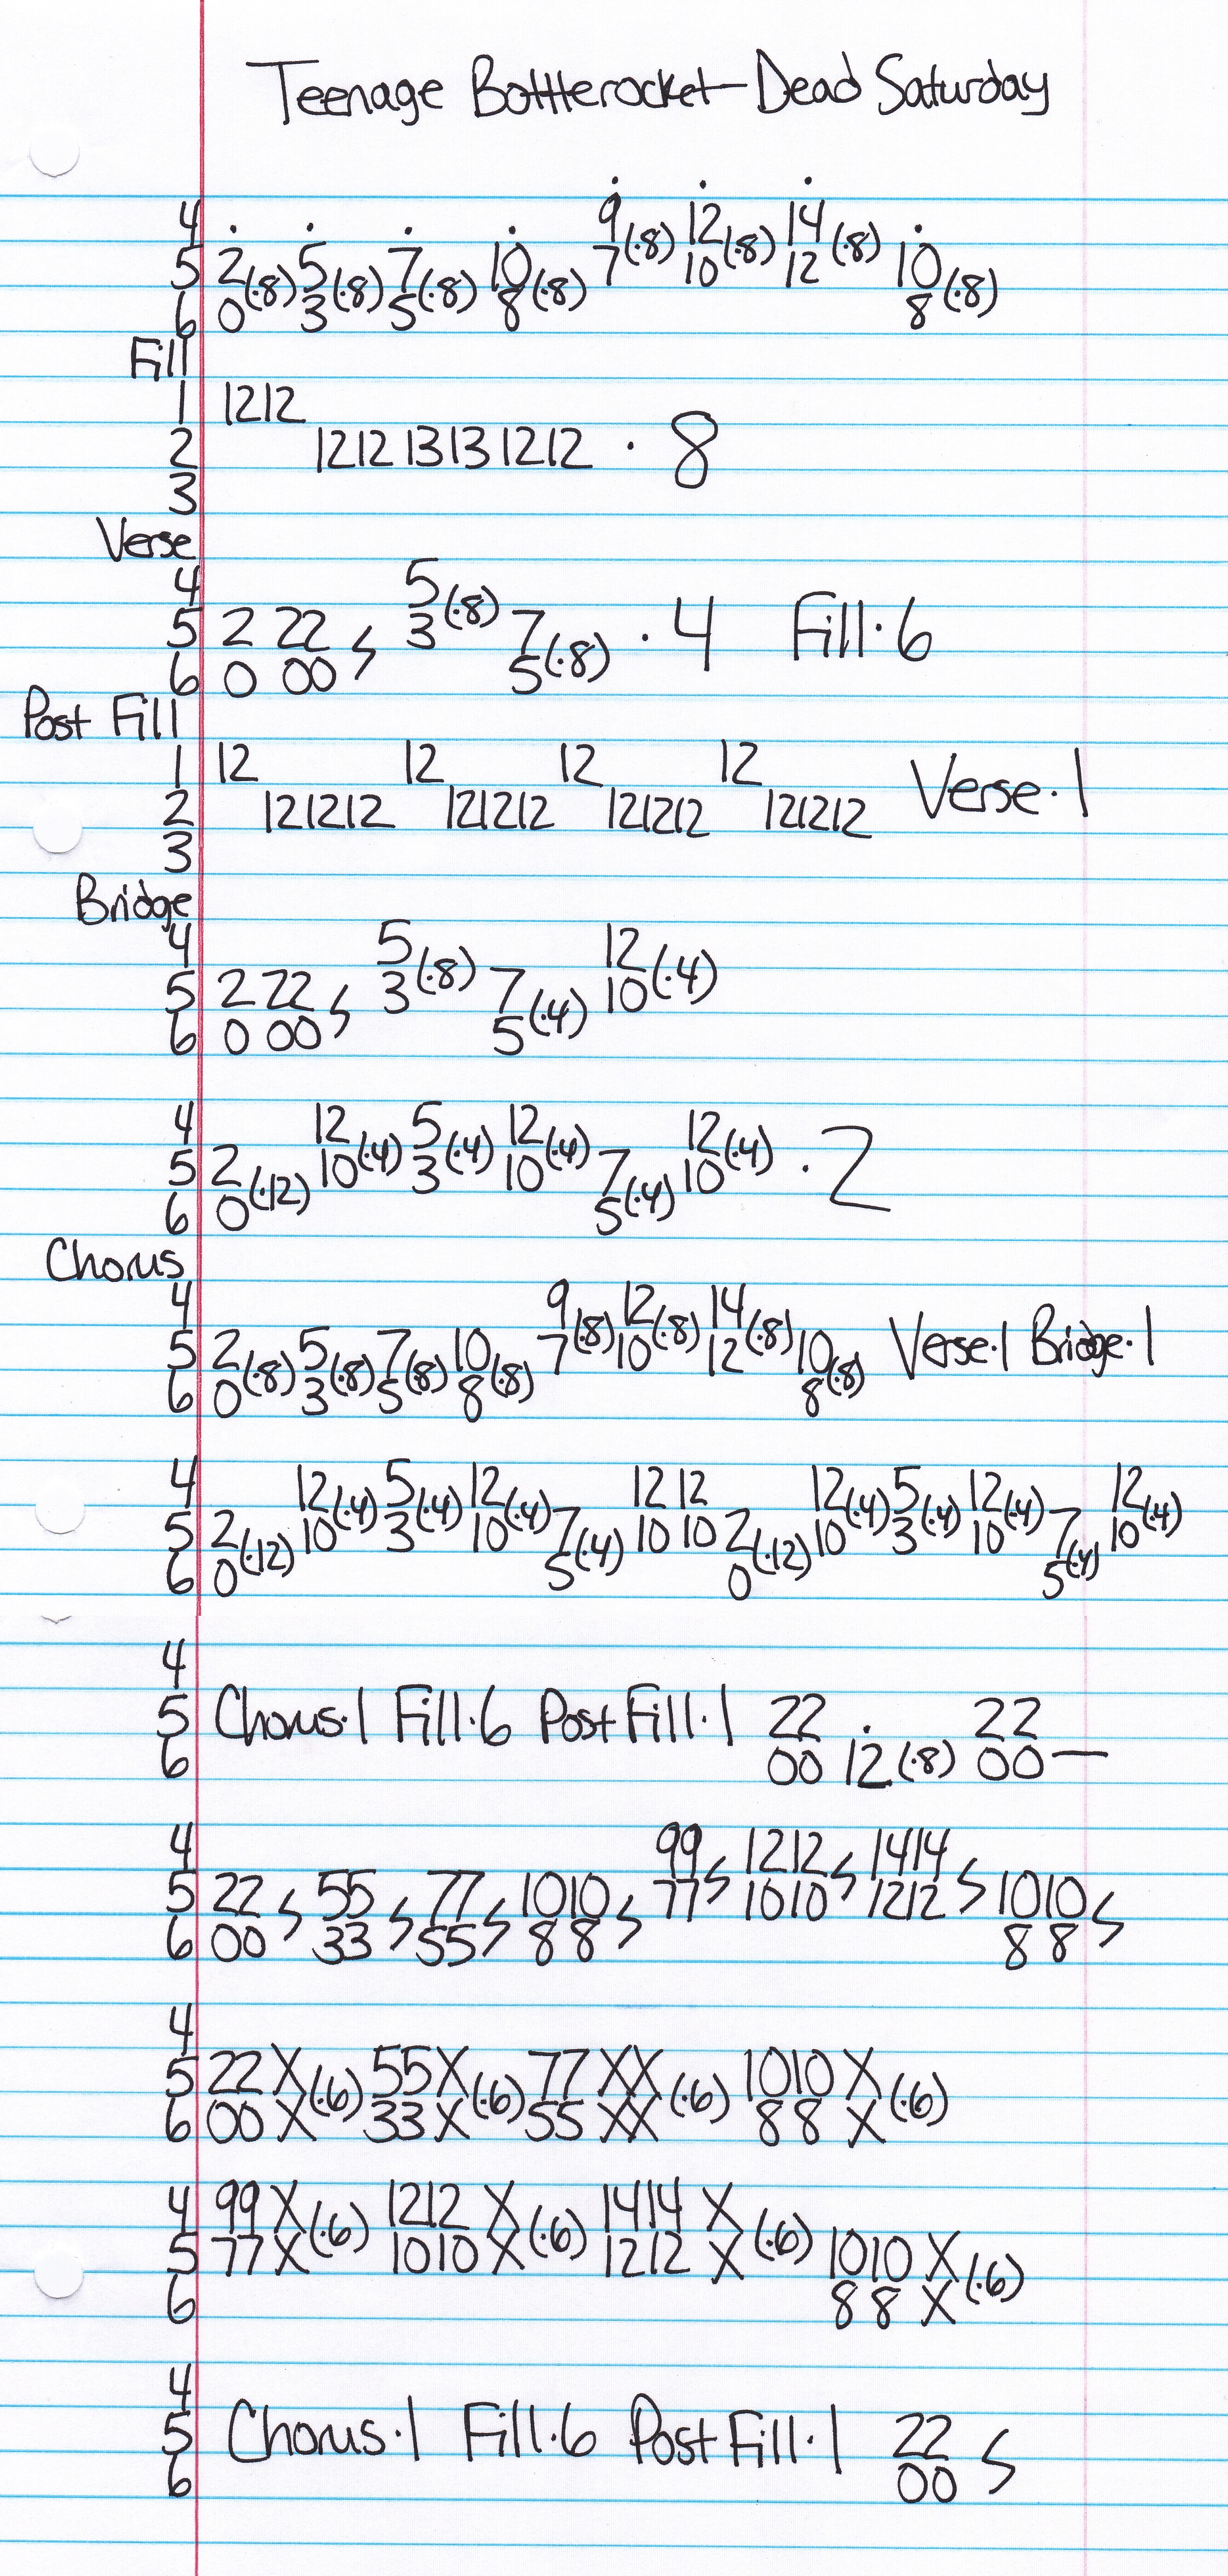 Teenage Bottlerocket - Dead Saturday
4 9 12 14
5 2(·8) 5(·8) 7(·8) 10(·8) 7(·8) 10(·8) 12(·8) 10(·8)
6 0 3 5 8 8
Fill
1 1212
2 1212 1313 1212 · 8
3
Verse
4 5(·8)
5 2 22 S 3 7(·8) · 4 Fill·6
6 0 00 5
Post Fill
1 12 12 12 12 Verse·1
2 121212 121212 121212 121212
3
Bridge
4 5(·8) 12(·4)
5 2 22 S 3 7(·4) 10
6 0 00 5
4 12(·4) 5(·4) 12(·4) 12(·4)
5 2(·12) 10 3 10 7(·4) 10 · 2
6 0 5
Chorus
4 9(·8) 12(·8) 14(·8)
5 2(·8) 5(·8) 7(·8) 10(·8) 7 10 12 10(·8) Verse·1 Bridge·1
6 0 3 5 8 8
4 12(·4) 5(·4) 12(·4) 12 12 12(·4) 5(·4) 12(·4) 12(·4)
5 2(·12) 10 3 10 7(·4) 10 10 2(·12) 10 3 10 7(·4) 10
6 0 5 0 5
4
5 Chorus·1 Fill·6 Post Fill·1 22 22
6 00 12(·8) 00—
4 99 S 1212 S 1414 S
5 22 S 55 S 77 S 1010 S 77 1010 1212 1010 S
6 00 33 55 8 8 8 8
4
5 22 X(·6) 55 X(·6) 77 XX(·6) 1010 X(·6)
6 00 X 33 X 55 XX 8 8 X
4 99 X(·6) 1212 X(·6) 1414 X(·6)
5 77 X 1010 X 1212 X 1010 X(·6)
6 8 8 X
4
5 Chorus·1 Fill·6 Post Fill·1 22 S
6 00